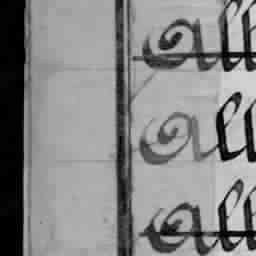 all
all
all